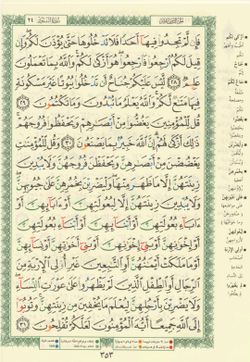 فَإِن لَّمْ تَجِدُوا۟ فِيهَآ أَحَدًا فَلَا تَدْخُلُوهَا حَتَّىٰ يُؤْذَنَ لَكُمْ ۖ وَإِن
قِيلَ لَكُمُ ٱرْجِعُوا۟ فَٱرْجِعُوا۟ ۖ هُوَ أَزْكَىٰ لَكُمْ ۚ وَٱللَّهُ بِمَا تَعْمَلُونَ
عَلِيمٌ ﴿٢٨﴾ لَّيْسَ عَلَيْكُمْ جُنَاحٌ أَن تَدْخُلُوا۟ بُيُوتًا غَيْرَ مَسْكُونَةٍ
فِيهَا مَتَٰعٌ لَّكُمْ ۚ وَٱللَّهُ يَعْلَمُ مَا تُبْدُونَ وَمَا تَكْتُمُونَ ﴿٢٩﴾
قُل لِّلْمُؤْمِنِينَ يَغُضُّوا۟ مِنْ أَبْصَٰرِهِمْ وَيَحْفَظُوا۟ فُرُوجَهُمْ ۚ
ذَٰلِكَ أَزْكَىٰ لَهُمْ ۗ إِنَّ ٱللَّهَ خَبِيرٌۢ بِمَا يَصْنَعُونَ ﴿٣٠﴾ وَقُل لِّلْمُؤْمِنَٰتِ
يَغْضُضْنَ مِنْ أَبْصَٰرِهِنَّ وَيَحْفَظْنَ فُرُوجَهُنَّ وَلَا يُبْدِينَ
زِينَتَهُنَّ إِلَّا مَا ظَهَرَ مِنْهَا ۖ وَلْيَضْرِبْنَ بِخُمُرِهِنَّ عَلَىٰ جُيُوبِهِنَّ ۖ
وَلَا يُبْدِينَ زِينَتَهُنَّ إِلَّا لِبُعُولَتِهِنَّ أَوْ ءَابَآئِهِنَّ أَوْ
ءَابَآءِ بُعُولَتِهِنَّ أَوْ أَبْنَآئِهِنَّ أَوْ أَبْنَآءِ بُعُولَتِهِنَّ
أَوْ إِخْوَٰنِهِنَّ أَوْ بَنِىٓ إِخْوَٰنِهِنَّ أَوْ بَنِىٓ أَخَوَٰتِهِنَّ أَوْ نِسَآئِهِنَّ
أَوْ مَا مَلَكَتْ أَيْمَٰنُهُنَّ أَوِ ٱلتَّٰبِعِينَ غَيْرِ أُو۟لِى ٱلْإِرْبَةِ مِنَ
ٱلرِّجَالِ أَوِ ٱلطِّفْلِ ٱلَّذِينَ لَمْ يَظْهَرُوا۟ عَلَىٰ عَوْرَٰتِ ٱلنِّسَآءِ ۖ
وَلَا يَضْرِبْنَ بِأَرْجُلِهِنَّ لِيُعْلَمَ مَا يُخْفِينَ مِن زِينَتِهِنَّ ۚ وَتُوبُوٓا۟
إِلَى ٱللَّهِ جَمِيعًا أَيُّهَ ٱلْمُؤْمِنُونَ لَعَلَّكُمْ تُفْلِحُونَ ﴿٣١﴾
٣٥٣